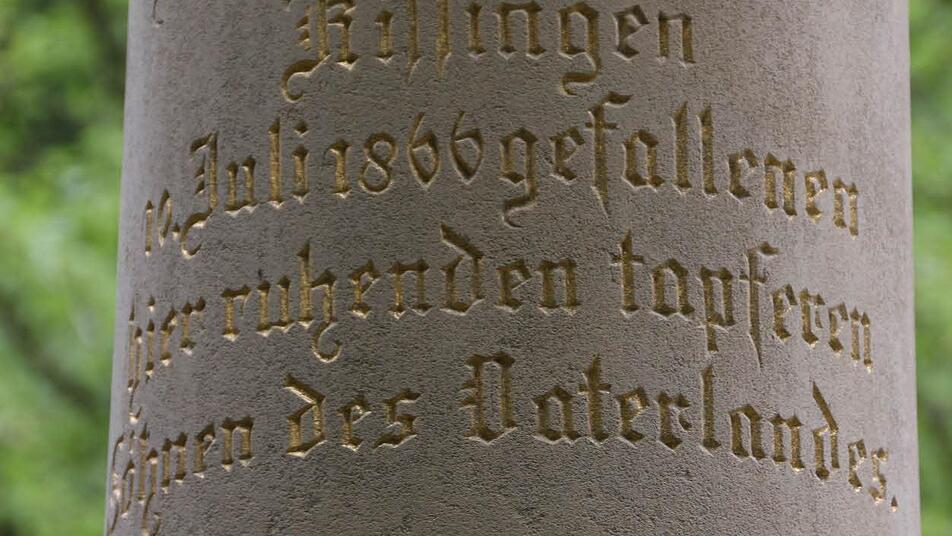 Kissingen
10. Juli 1866 gefallenen
hier ruhenden tapferen
Söhnen des Vaterlandes.